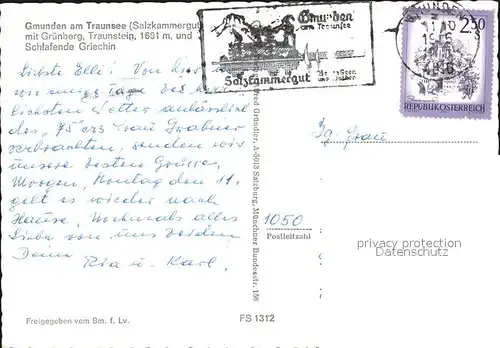 Gmunden am Traunsee (Salzkammergut)
mit Grünberg, Traunstein, 1691 m, und
Schlafende Griechin
Gmunden
am Traunsee
Salzkammergut
2.50
REPUBLIK ÖSTERREICH
Liebste Elli! Von hier wo
wir einige Tage bei
lichsten Wetter anlässlich
des 75ers Frau Grabner
verbrachten, senden wir
unsere besten Grüsse.
Morgen, Montag den 11.
geht es wieder nach
Hause. Nochmals alles
Liebe von uns beiden
Deine Ria u. Karl.
Frau
1050
Postleitzahl
Alfred Gründler, A-5013 Salzburg, Münchner Bundesstr. 156
privacy protection
Datenschutz
Freigegeben vom Bm. f. Lv.
FS 1312